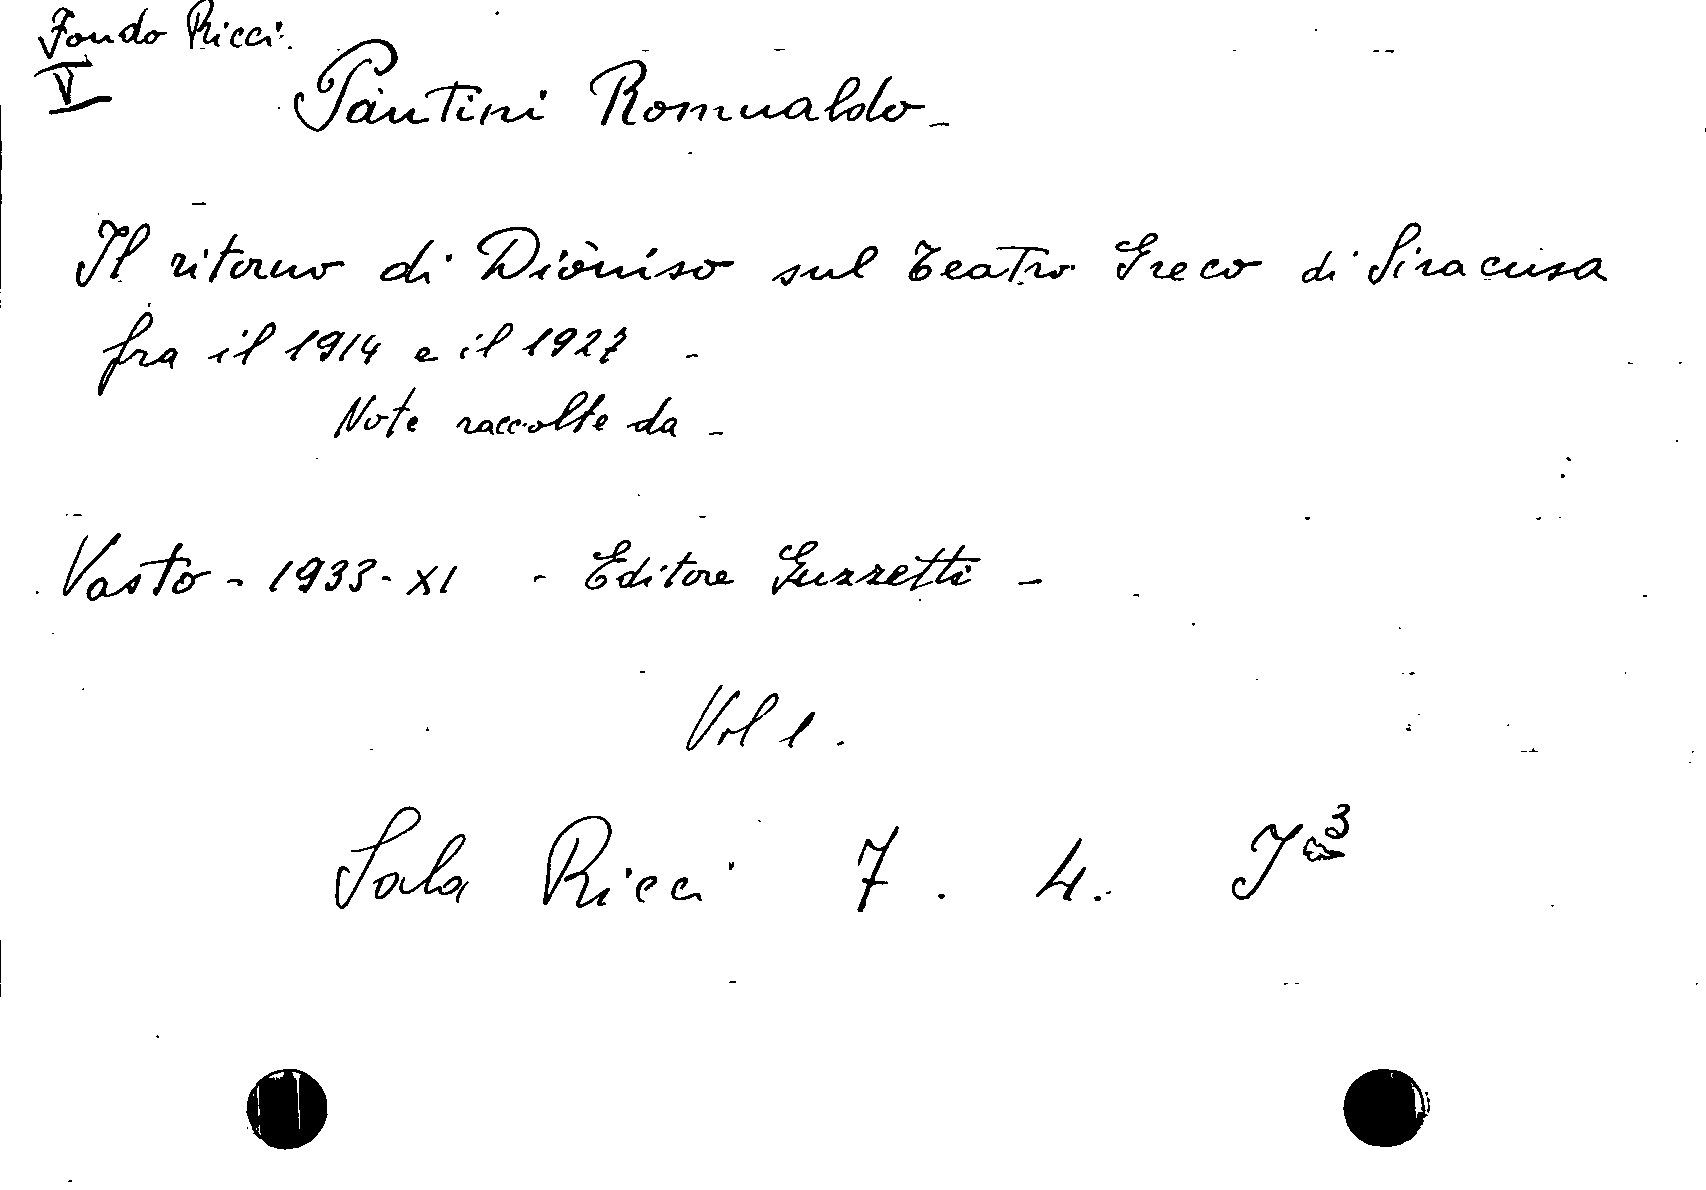 Fondo Ricci.
V
Pantini Romualdo -
Il ritorno di Dióniso sul Teatro Greco di Siracusa
fra il 1914 e il 1927 -
Note raccolte da -
Vasto - 1933 - XI - Editore Guzzetti -
Vol 1.
Sala Ricci 7. 4. I 3